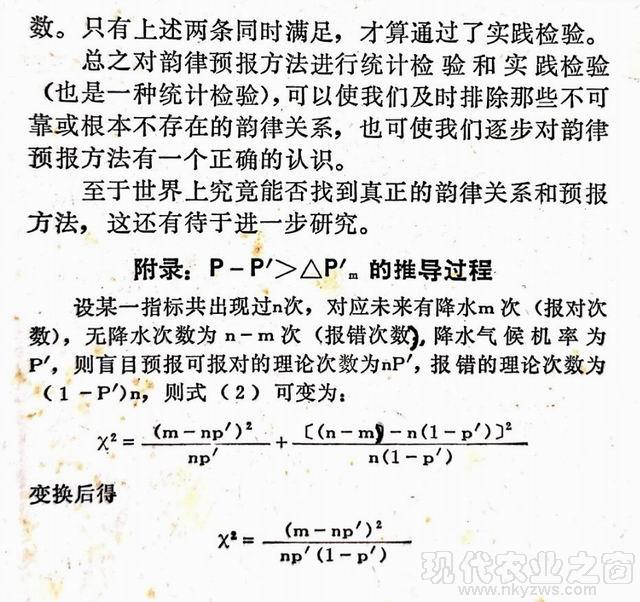 数。只有上述两条同时满足，才算通过了实践检验。
总之对韵律预报方法进行统计检验和实践检验
（也是一种统计检验），可以使我们及时排除那些不可
靠或根本不存在的韵律关系，也可使我们逐步对韵律
预报方法有一个正确的认识。
至于世界上究竟能否找到真正的韵律关系和预报
方法，这还有待于进一步研究。
附录：P－P′＞△P′ₘ 的推导过程
设某一指标共出现过n次，对应未来有降水m次（报对次
数），无降水次数为n－m次（报错次数），降水气候机率为
P′，则盲目预报可报对的理论次数为nP′，报错的理论次数为
（1－P′)n，则式（2）可变为：
χ²＝(m－np′)²/np′＋〔(n－m)－n(1－p′)〕²/n(1－p′)
变换后得
χ²＝(m－np′)²/np′(1－p′)
现代农业之窗
www.nkyzws.com